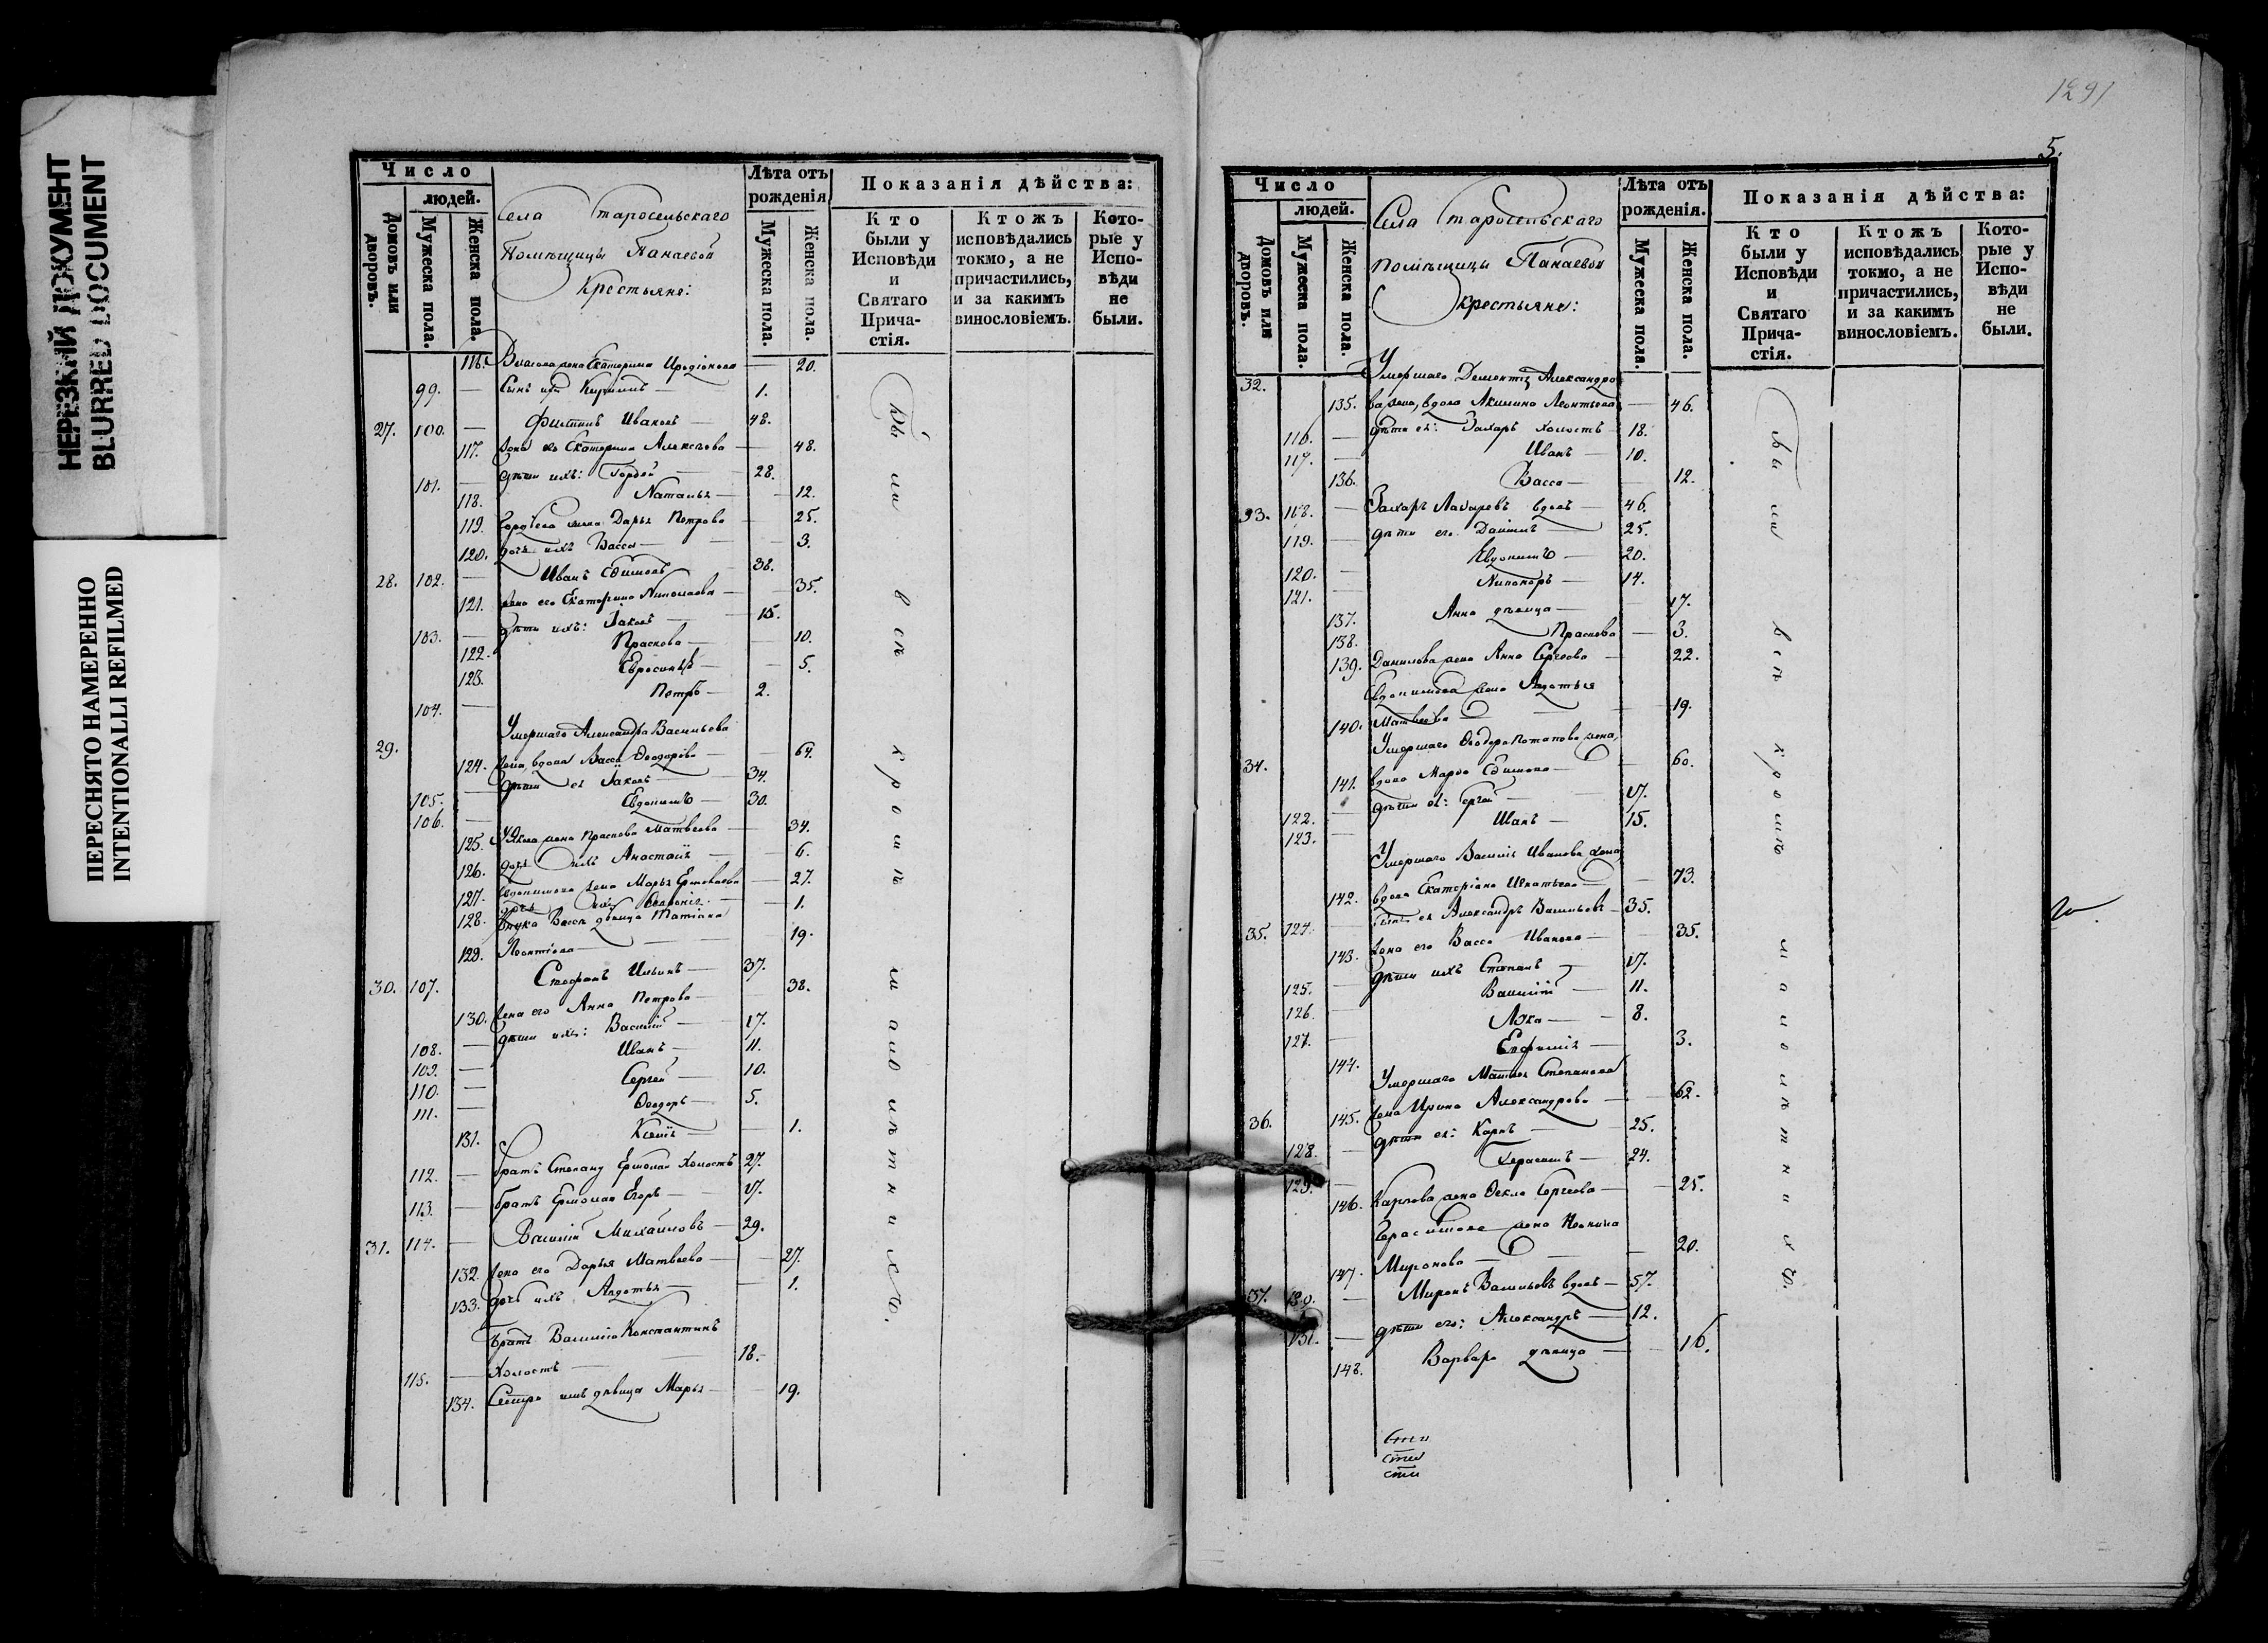 НЕРЕЗКИЙ ДОКУМЕНТ
BLURRED DOCUMENT
ПЕРЕСНЯТО НАМЕРЕННО
INTENTIONALLI REFILMED
Число
людей.
Домовъ или дворовъ.
Мужеска пола.
Женска пола.
Села Старосельскаго
Помѣщицы Панаевой
Крестьяне:
Лѣта отъ рожденія
Мужеска пола.
Женска пола.
Показанія дѣйства:
Кто были у Исповѣди и Святаго Прича-стія.
Ктожъ исповѣдались токмо, а не причастились, и за какимъ винословіемъ.
Кото-рые у Испо-вѣди не были.
116. жена Екатерина Иродіонова — 20.
99. — Сынъ ихъ — 1.
27. 100. — Филиппъ Ивановъ 48.
117. жена его Екатерина Алексѣева — 48.
101. — дѣти ихъ: Гордей — 28.
118. Наталья — 12.
119. Гордѣева жена Дарья Петрова — 25.
120. дочь ихъ Васса — 3.
28. 102. — Иванъ Ефимовъ 38.
121. жена его Екатерина Николаева — 35.
103. — дѣти ихъ: Іаковъ — 15.
122. Прасковья — 10.
123. Евросинья — 5.
104. — Петръ — 2.
29. Умершаго Александра Васильева
124. жена, вдова Васса Ѳеодорова — 64.
105. — дѣти ея Іаковъ — 34.
106. — Евдокимъ — 30.
125. Іякова жена Прасковья Матвеева — 34.
126. дочь ихъ Анастасія — 6.
127. Евдокимова жена Марья Ермолаева — 27.
128. дочь ихъ — 1.
Внука Вассы дѣвица Татіана
129. Леонтіева — 19.
30. 107. Стефанъ Ильинъ — 37.
130. жена его Анна Петрова — 38.
108. — дѣти ихъ: Василій — 17.
109. — Иванъ — 11.
110. — Сергей — 10.
111. — Ѳеодоръ — 5.
131. Ксенія — 1.
112. — братъ Степану Ермолай Холостъ 27.
113. — братъ Ермолаю Егоръ — 17.
31. 114. — Василій Михайловъ — 29.
132. жена его Дарья Матвеева — 27.
133. дочь ихъ Авдотья — 1.
братъ Василію Константинъ
115. — Холостъ — 18.
134. Сестра имъ дѣвица Марья — 19.
Были всѣ кромѣ малолѣтнихъ.
1291
5.
Число
людей.
Домовъ или дворовъ.
Мужеска пола.
Женска пола.
Села Старосельскаго
помѣщицы Панаевой
крестьяне:
Лѣта отъ рожденія.
Мужеска пола.
Женска пола.
Показанія дѣйства:
Кто были у Исповѣди и Святаго Прича-стія.
Ктожъ исповѣдались токмо, а не причастились, и за какимъ винословіемъ.
Кото-рые у Испо-вѣди не были.
32. Умершаго Дементія Александро
135. ва жена, вдова Акилина Леонтьева — 46.
116. — дѣти ея: Захаръ холостъ — 18.
117. — Иванъ — 10.
136. Васса — 12.
33. 118. — Захаръ Лазаревъ вдовъ — 46.
119. — дѣти его Даніилъ — 25.
120. — Евдокимъ — 20.
121. — Никаноръ — 14.
137. Анна дѣвица — 17.
138. Прасковья — 3.
139. Данилова жена Анна Сергеева — 22.
Евдокимова жена Авдотья
140. Матвеева — 19.
34. Умершаго Ѳеодора Потапова жена,
141. вдова Марѳа Ефимова — 60.
122. — дѣти ея: Сергей — 17.
123. — Иванъ — 15.
Умершаго Василія Иванова жена,
142. вдова Екатеріна Игнатьева — 73.
35. 124. — Сынъ ея Александръ Васильевъ — 35.
143. жена его Васса Иванова — 35.
125. — дѣти ихъ Степанъ — 17.
126. — Василій — 11.
127. — Лука — 8.
144. Евфимія — 3.
36. Умершаго Матвея Степанова
145. жена Ирина Александрова — 62.
128. — дѣти ея: Карпъ — 25.
129. — Герасимъ — 24.
146. Карпова жена Ѳекла Сергеева — 25.
Герасимова жена Неонила
147. Миронова — 20.
37. 130. — Миронъ Васильевъ вдовъ — 57.
131. — дѣти его: Александръ — 12.
148. Варвара дѣвица — 16.
Были всѣ кромѣ малолѣтнихъ.